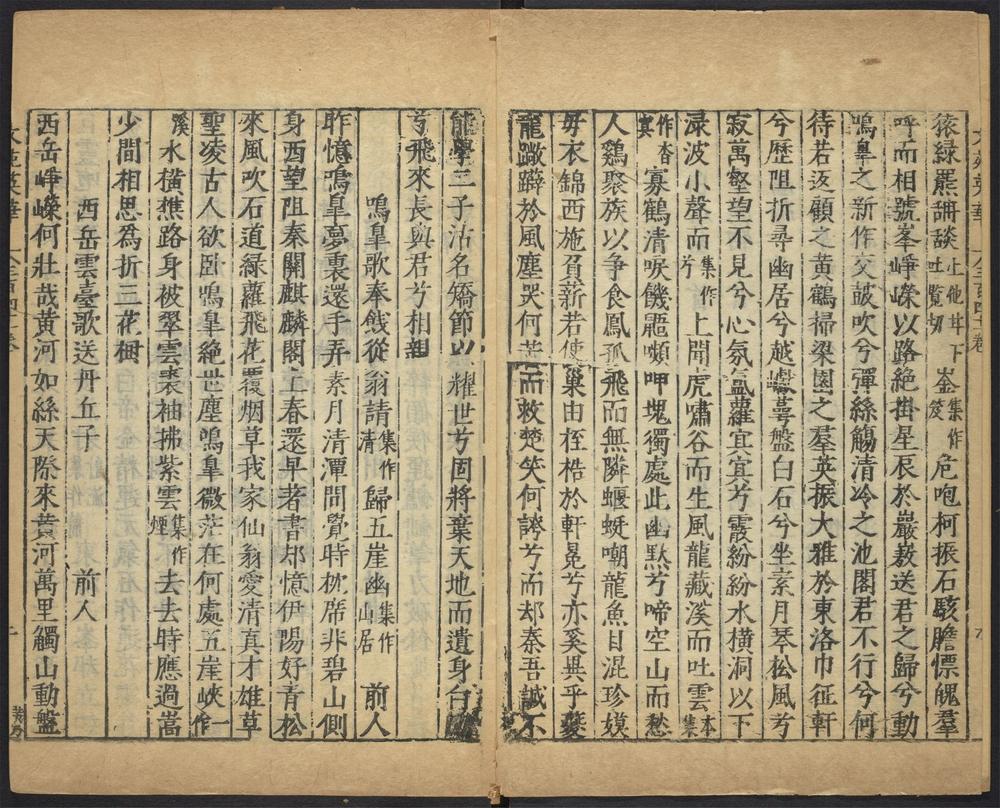 猿緑羆䑙䑜上他甘下吐覧切崟集作岌危咆柯振石駭膽慄魄羣
呼而相號峯崢嶸以路絶掛星辰於巖𡼲送君之歸兮動
鳴臯之新作交皷吹兮彈絲觴清冷之池閣君不行兮何
待若返顧之黄鶴掃梁園之羣英振大雅於東洛巾征軒
兮歷阻折尋幽居兮越巘崿盤白石兮坐素月琴松風兮
寂萬壑望不見兮心氛氳蘿冥冥兮霰紛紛水横洞以下
渌波小聲而集作兮上聞虎嘯谷而生風龍藏溪而吐雲本集
作杳㝠寡鶴清唳饑鼯嚬呷塊獨處此幽默兮啼空山而愁
人鷄聚族以争食鳳孤飛而無隣蝘蜓嘲龍魚目混珍嫫
母衣錦西施負薪若使巢由桎梏於軒冕兮亦奚異乎夔
龍蹩躠於風塵哭何苦而救楚笑何誇兮而却秦吾誠不
能學三子沽名矯節以耀世兮固將棄天地而遺身白
兮飛來長與君兮相親
鳴臯歌奉餞從翁請集作清歸五崖幽集作山居 前人
昨憶鳴臯夢裏還手弄素月清潭間覺時枕席非碧山側
身西望阻秦關麒麟閣上春還早著書却憶伊陽好青松
來風吹石道緑蘿飛花覆烟草我家仙翁愛清真才雄草
聖凌古人欲卧鳴臯絶世塵鳴臯微茫在何處五崖峽一作
溪水横樵路身被翠雲裘袖拂紫雲集作煙去去時應過嵩
少間相思為折三花樹
西岳雲臺歌送丹丘子 前人
西岳崢嶸何壯哉黄河如絲天際來黄河萬里觸山動盤